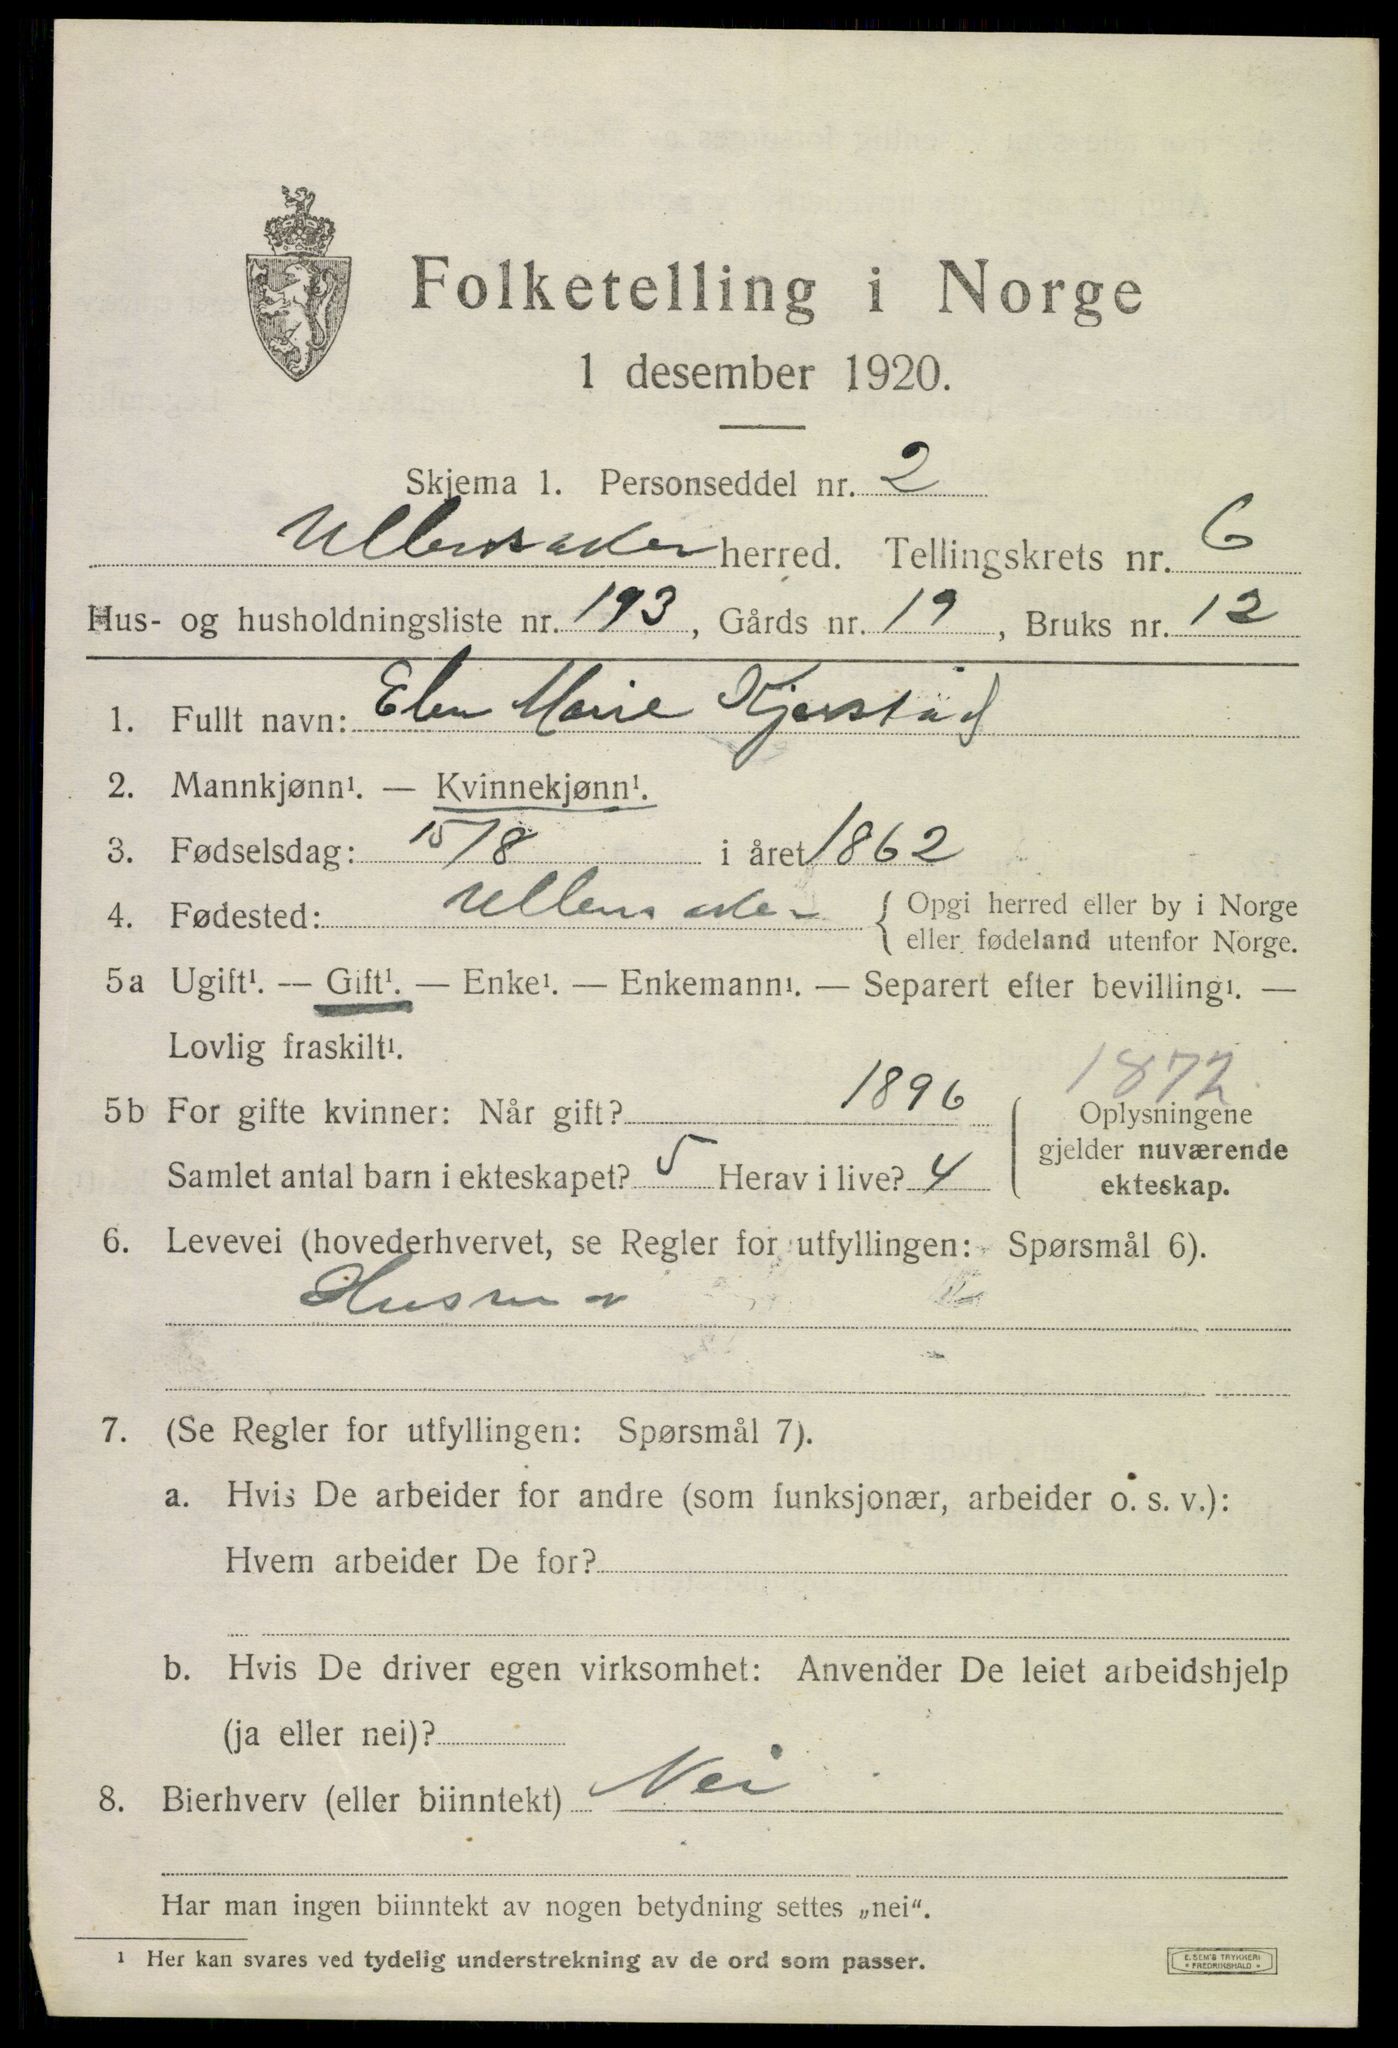 Folketelling i Norge
1 desember 1920.
Skjema 1. Personseddel nr. 2
Ullensaker herred. Tellingskrets nr. 6
Hus- og husholdningsliste nr. 193, Gårds nr. 19, Bruks nr. 12
1. Fullt navn: Elen Marie Kjerstad
2. Mannkjønn¹. — Kvinnekjønn¹.
3. Fødselsdag: 15/8 i året 1862
4. Fødested: Ullensaker { Opgi herred eller by i Norge
eller fødeland utenfor Norge.
5a Ugift¹. — Gift¹. — Enke¹. — Enkemann¹. — Separert efter bevilling¹. —
Lovlig fraskilt¹.
1872
5b For gifte kvinner: Når gift? 1896
Samlet antal barn i ekteskapet? 5 Herav i live? 4
Oplysningene
gjelder nuværende
ekteskap.
6. Levevei (hovederhvervet, se Regler for utfyllingen: Spørsmål 6).
Husmor
7. (Se Regler for utfyllingen: Spørsmål 7).
a. Hvis De arbeider for andre (som funksjonær, arbeider o. s. v.):
Hvem arbeider De for?
b. Hvis De driver egen virksomhet: Anvender De leiet arbeidshjelp
(ja eller nei)?
8. Bierhverv (eller biinntekt) Nei
Har man ingen biinntekt av nogen betydning settes „nei“.
¹ Her kan svares ved tydelig understrekning av de ord som passer.
E. SEM'S TRYKKERI
FREDRIKSHALD